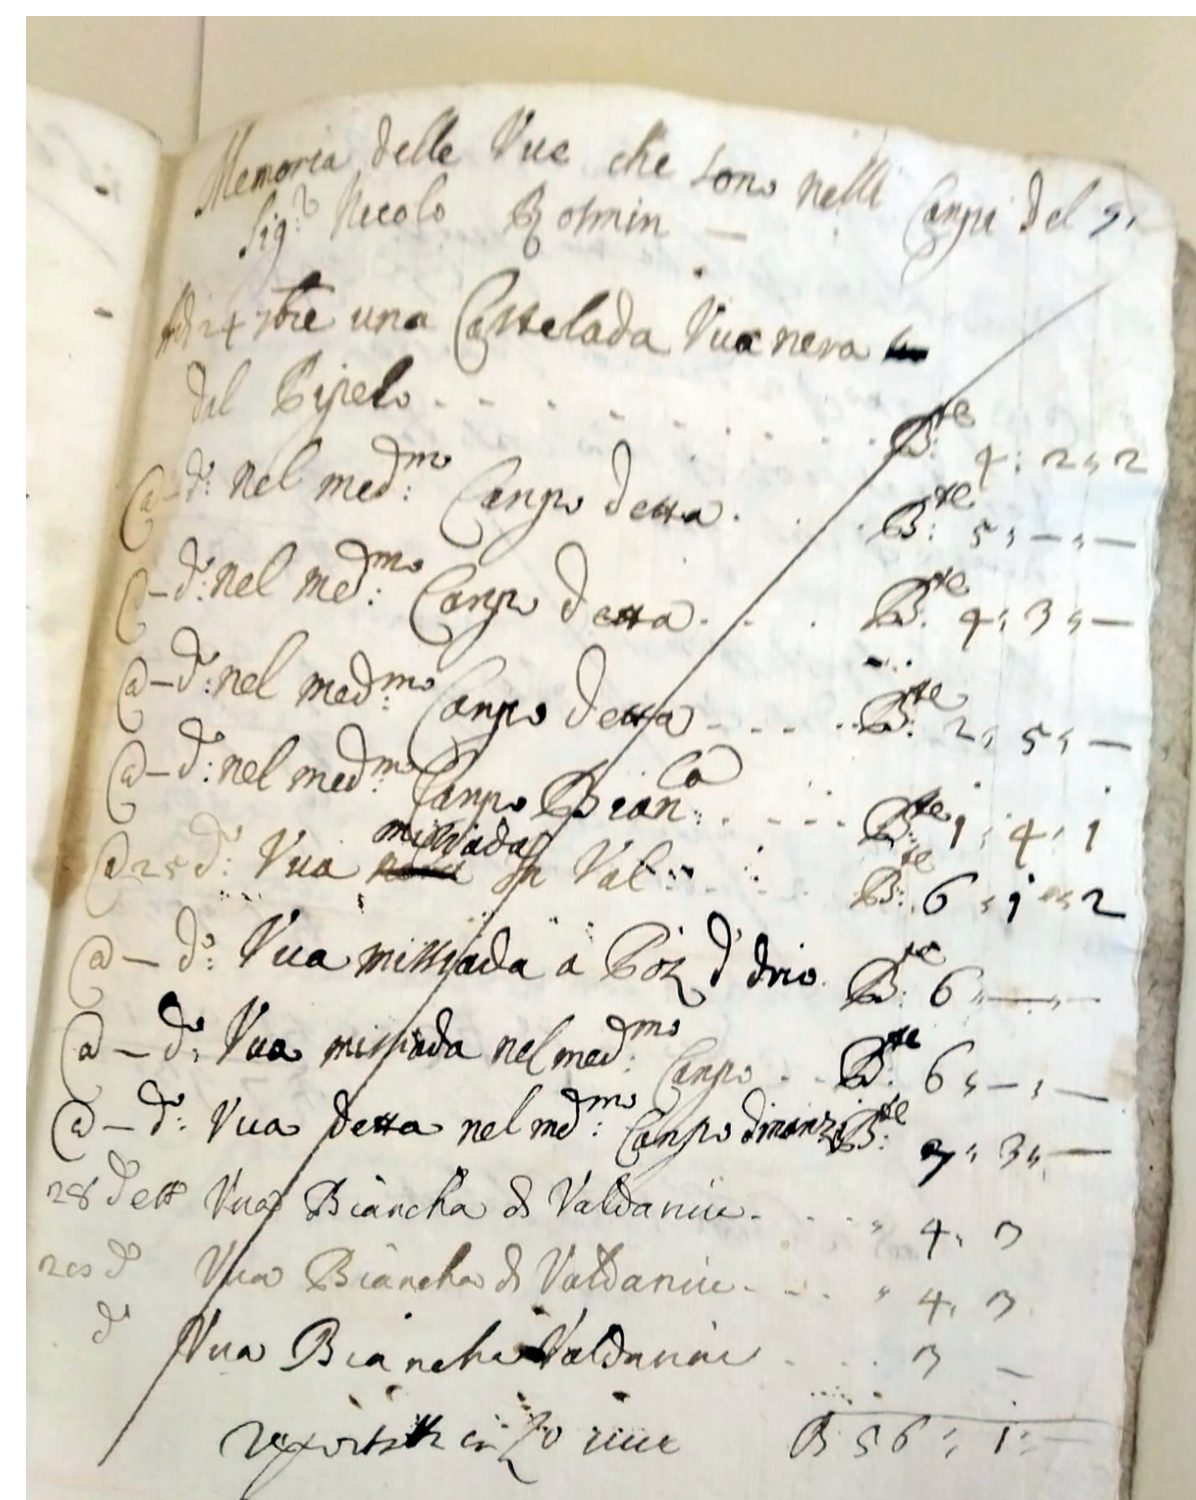 Memoria delle Vue che sono nelli Campi del
Sig:r Nicolo Rosmin —
Adi 24 7bre una Castelada Vua nera
dal Pipelo
@ - d:o nel med:mo Campo detta. B:te 4: 2: 2
@ - d:o nel med:mo Campo detta. B:te 5: — : —
@ - d:o nel med:mo Campo detta B:te 4: 3: —
@ - d:o nel med:mo Campo Bian:ca B:te 2: 5: —
@ 25 d:o Vua missiada in Val B:te 1: 4: 1
B:te 6: 1: 2
@ - d:o Vua missiada a Poz d' drio B:te 6: — : —
@ - d:o Vua missiada nel med:mo Campo B:te 6: — : —
@ - d:o Vua detta nel med:mo Campo dinanzi B:te 7: 3: —
28 detto Vua Biancha di Valdaniu 4: 3
d:o Vua Biancha di Valdaniu 4: 3
d:o Vua Biancha Valdaniu 3 —
B 56: 1: —